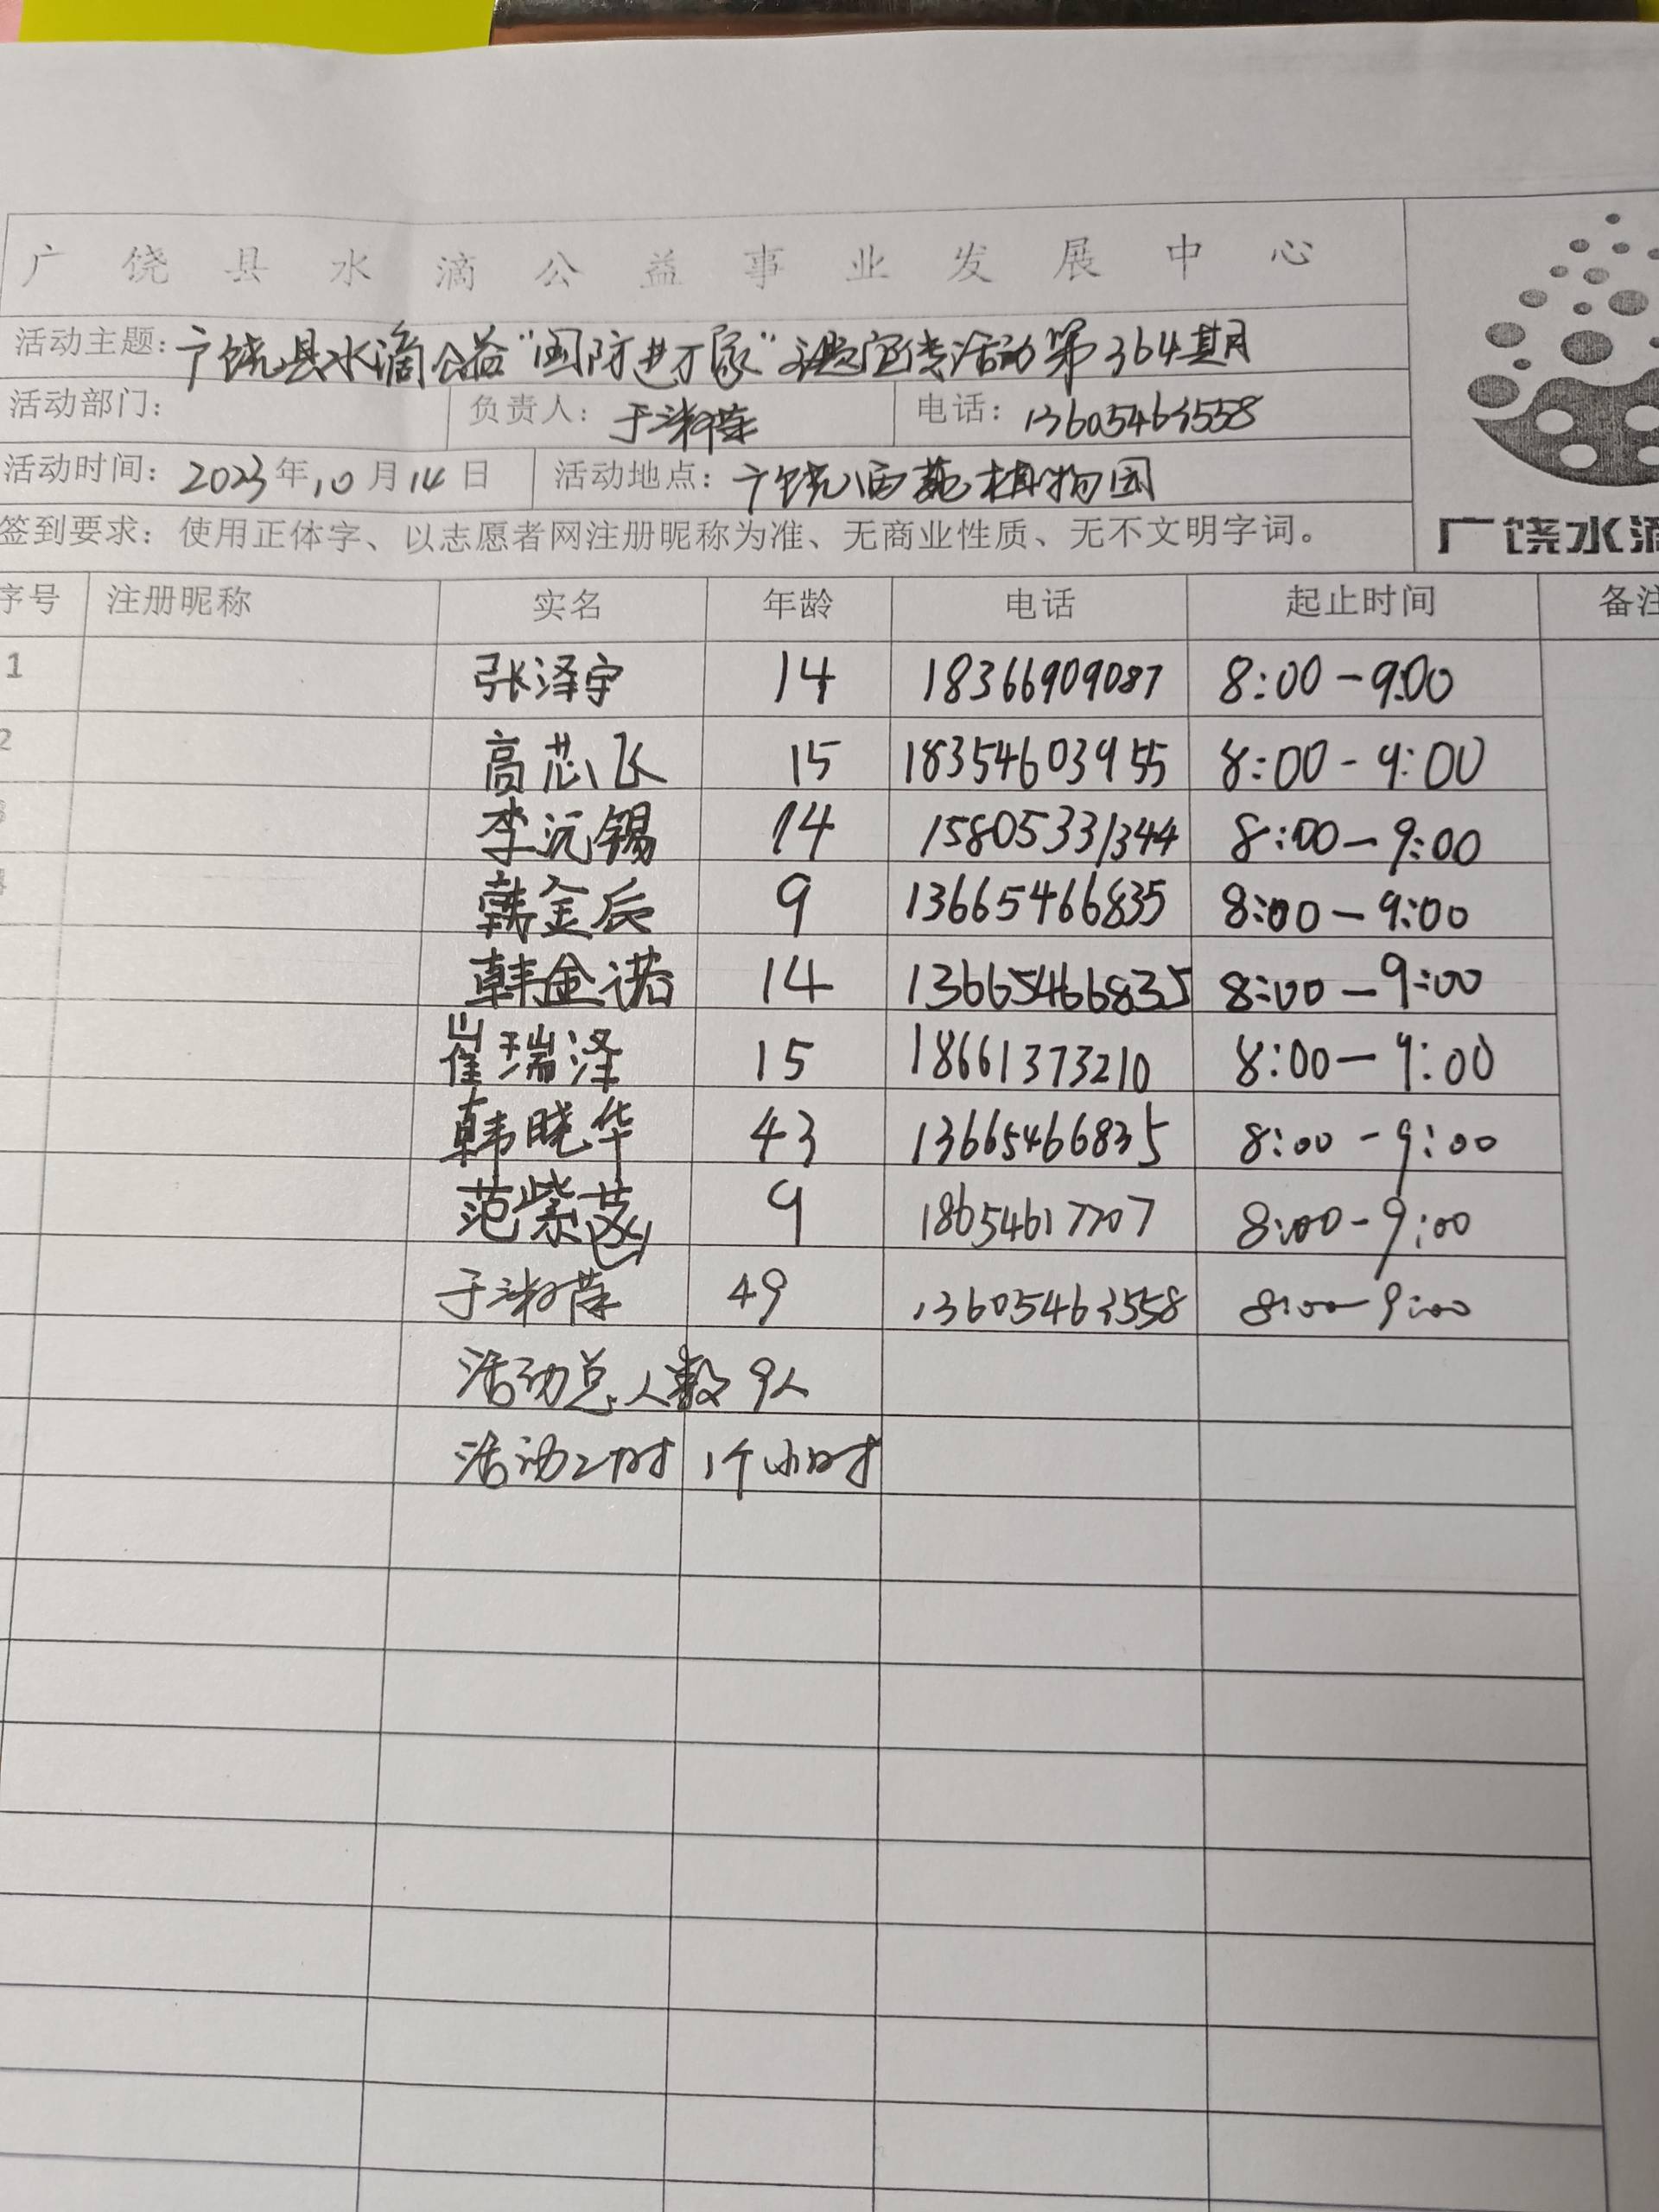 广饶县水滴公益事业发展中心
活动主题：广饶县水滴公益"国防进万家"志愿宣传活动第364期
活动部门： 负责人：于淑荣 电话：13605463558
活动时间：2023年10月14日 活动地点：广饶西苑植物园
签到要求：使用正体字、以志愿者网注册昵称为准、无商业性质、无不文明字词。
广饶水滴
序号 注册昵称 实名 年龄 电话 起止时间 备注
1 张泽宇 14 18366909087 8:00-9:00
2 高芯飞 15 18354603955 8:00-9:00
李沅锡 14 15805331344 8:00-9:00
韩金辰 9 13665466835 8:00-9:00
韩金诺 14 13665466835 8:00-9:00
崔瑞泽 15 18661373210 8:00-9:00
韩晓华 43 13665466835 8:00-9:00
范紫 9 18654617707 8:00-9:00
于淑荣 49 13605463558 8:00-9:00
活动总人数 9人
活动工时 1个小时